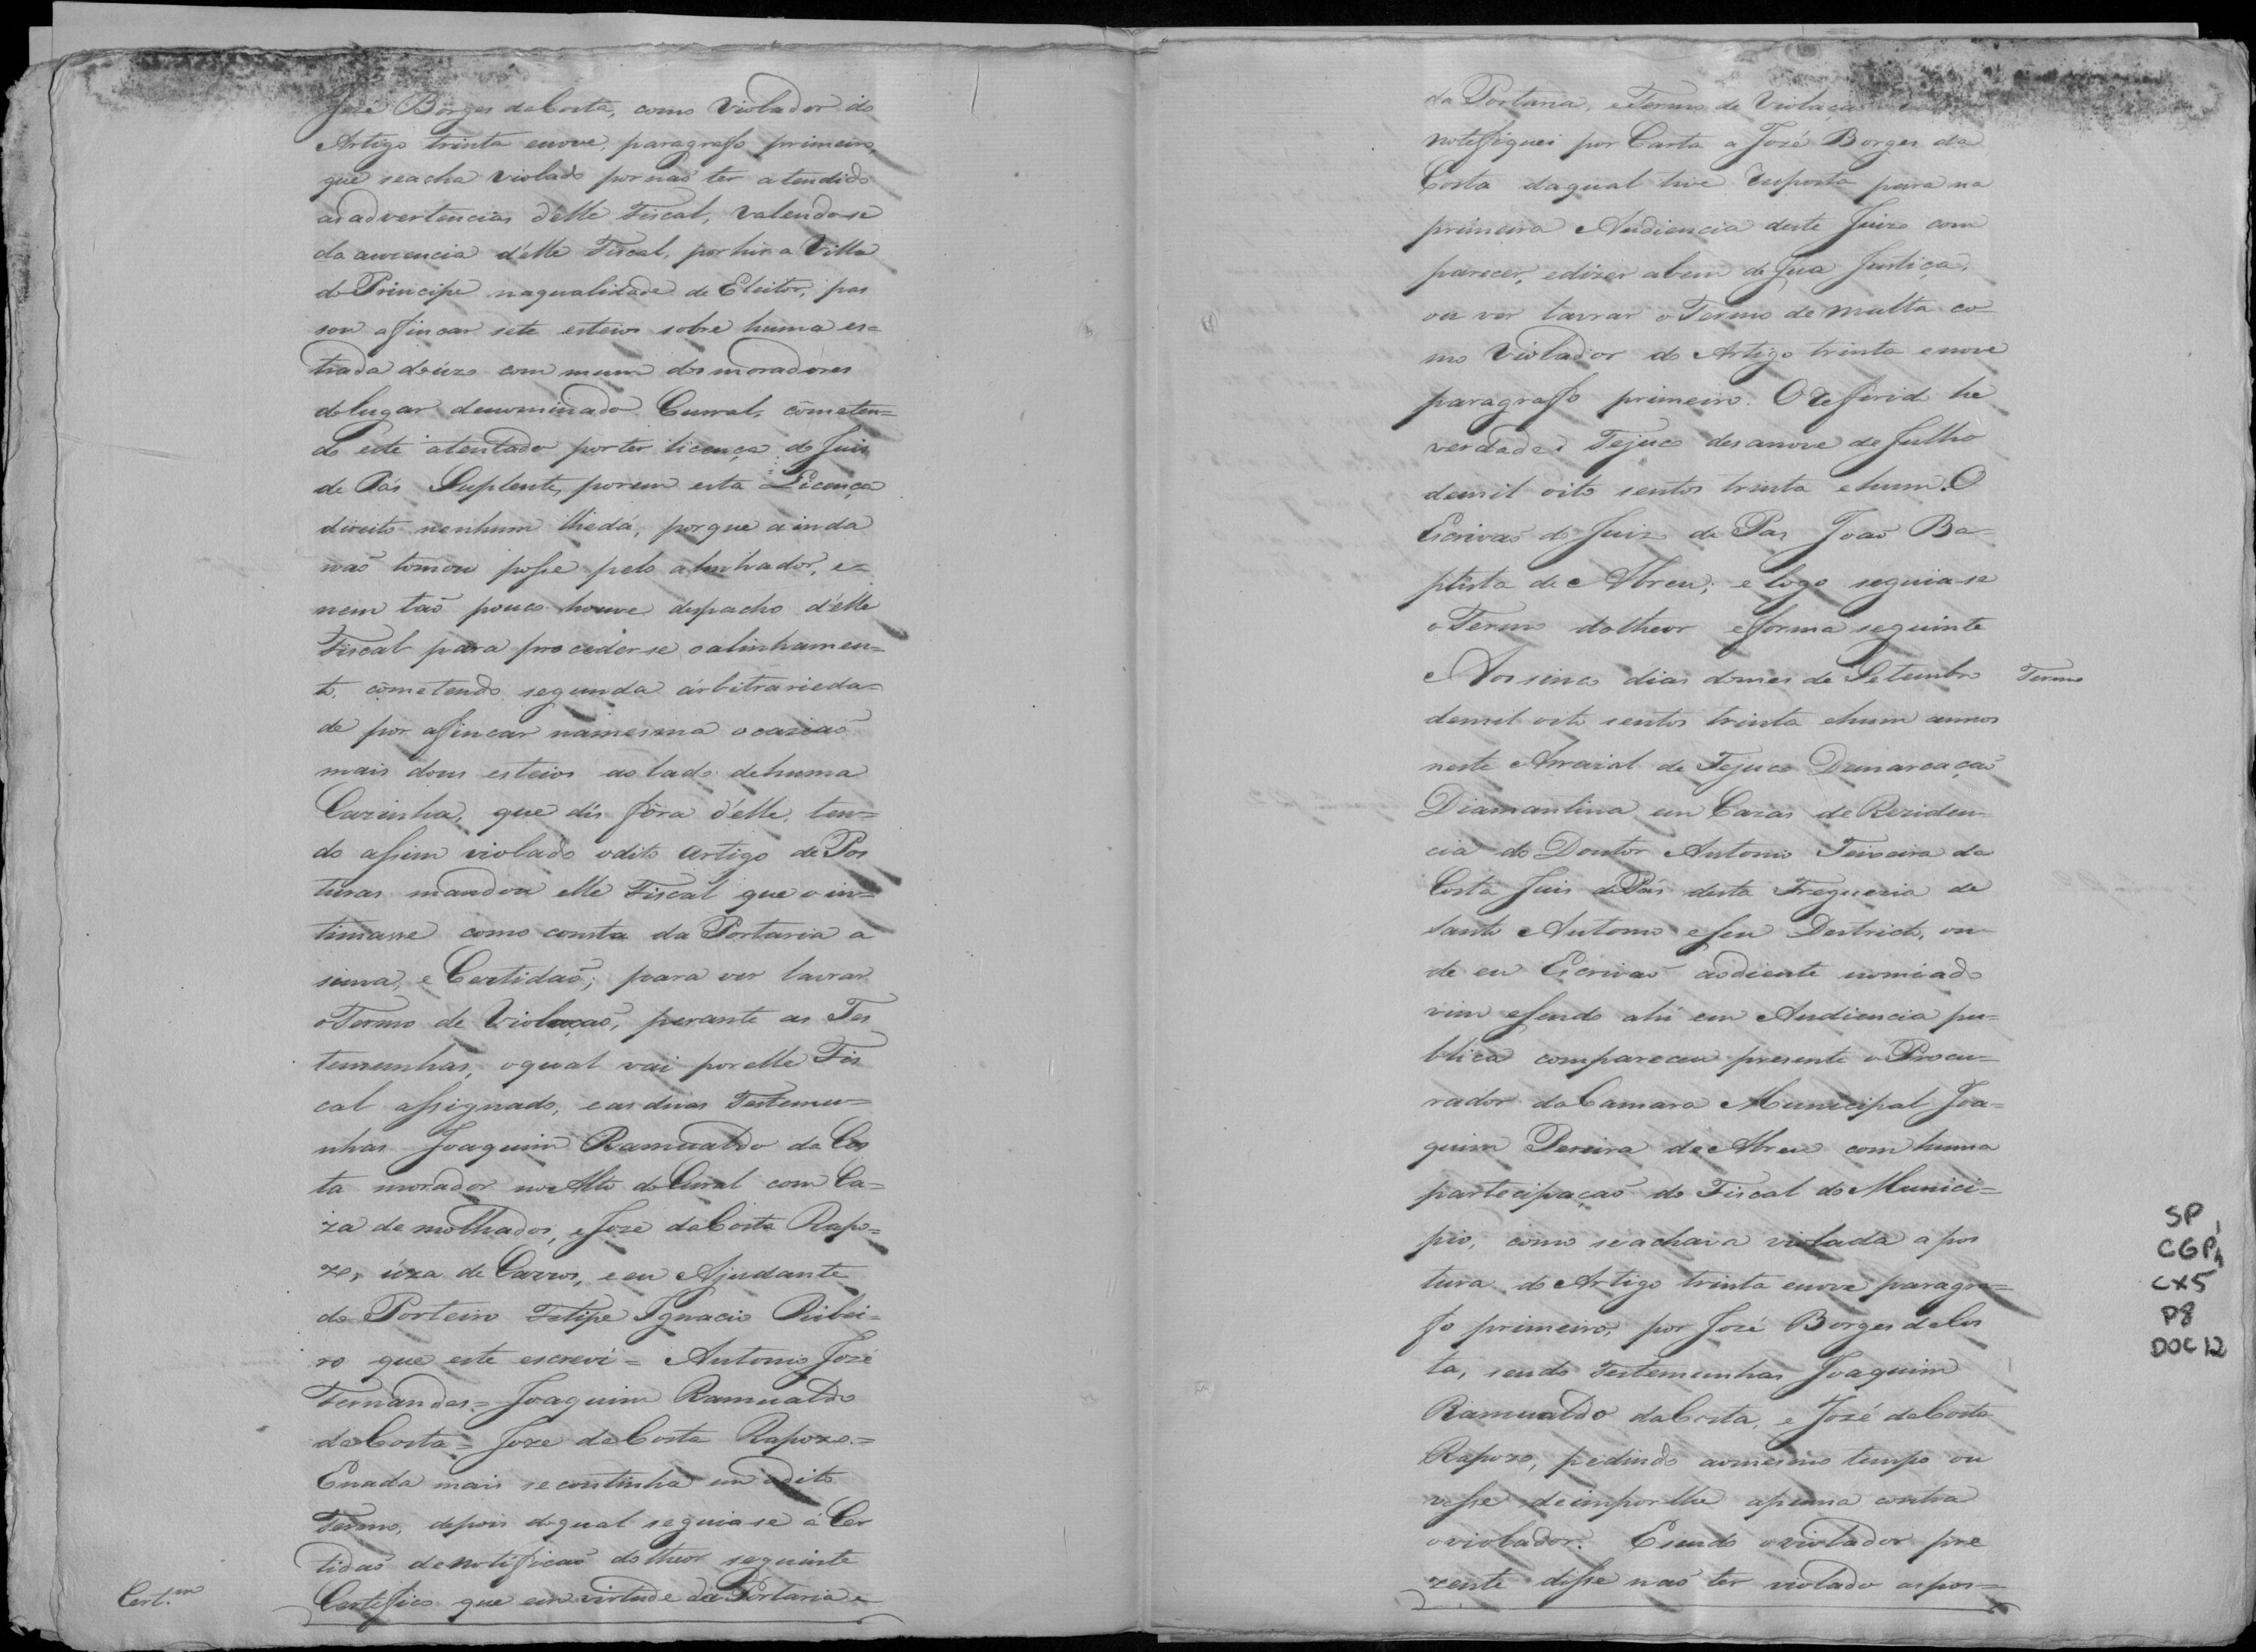 José Borges da Costa, como Violador do
Artigo trinta enove, paragrafo primeiro,
que seacha violado por naõ ter atendido
as advertencias d'elle Fiscal, valendo-se
da auzencia d'elle Fiscal, por hir a Villa
do Principe naqualidade de Eleitor, pas
sou afincar sete esteios sobre huma es=
trada de uzo com mum dos moradores
do lugar denominado Curral, cometen=
do este atentado por ter licença do Juis
de Pas Suplente, porem esta Licença
direito nenhum lhedá, porque ainda
naõ tomou posse pelo alinhador, e=
nem taõ pouco houve despacho d'elle
Fiscal para proceder-se o alinhamen=
to, cometendo segunda arbitrarieda=
de por afincar namesma ocaziaõ
mais dous esteios ao lado dehuma
Cazinha, que dis fôra d'elle, ten=
do assim violado odito artigo de Pos
turas mandou elle Fiscal que o in=
timasse como consta da Portaria a
sima, e Certidaõ; para ver lavrar
o Termo de Violaçaõ, perante as Tes
temunhas, oqual vai por elle Fis
cal assignado, e as duas Testemu=
nhas Joaquim Ramualdo da Cos
ta morador no Alto do Curral com Ca=
za de molhados, e Joze da Costa Rapo=
zo, uza de Carros, e eu Ajudante
do Porteiro Felipe Ignacio Ribei=
ro que este escrevi = Antonio José
Fernandes = Joaquim Ramualdo
da Costa = Joze da Costa Rapozo =
Enada mais se continha em odito
Termo, depois doqual seguia-se á Cer
tidaõ de notificaõ do theor seguinte
Cert.m
Certefico que em virtude da Portaria e
da Portaria, e Termo de Violaçaõ
notefiquei por Carta a José Borges da
Costa daqual tive resposta para na
primeira Audiencia deste Juizo com
parecer, edizer abem de sua Justiça,
ou ver lavrar o Termo de multa co=
mo Violador do Artigo trinta enove
paragrafo primeiro. O referid he
verdade. Tejuco desanove de Julho
demil oito sentos trinta ehum. O
Escrivaõ do Juiz de Pas Joaõ Ba=
ptista de Abreu; e logo seguia-se
o Termo dotheor eforma seguinte
Aos sinco dias domes de Setembro
Termo
demil oito sentos trinta ehum annos
neste Arraial de Tejuco Demarcaçaõ
Diamantina em Cazas de Reziden=
cia do Doutor Antonio Teixeira da
Costa Juis de Pás desta Freguezia de
Santo Antonio eseu Destricto, on
de eu Escrivaõ aodiente nomiado
vim esendo ahi em Audiencia pu=
blica compareceu presente o Procu=
rador da Camara Municipal Joa=
quim Pereira de Abreu com huma
partecipaçaõ do Fiscal do Munici=
pio, como se achava violada a pos
tura do Artigo trinta enove paragra=
fo primeiro, por José Borges da Cos
ta, sendo Testemunhas Joaquim
Ramualdo da Costa, e José da Costa
Rapozo, pedindo aomesmo tempo ou
vesse deimporlhe apenna contra
oviolador. Esendo oviolador pre
zente disse naõ ter violado aspos=
SP,
CGP,
CX5
P8
DOC12